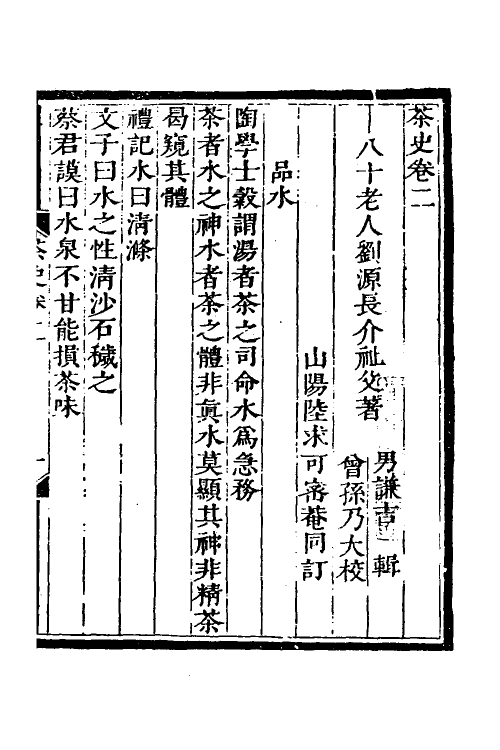 茶史卷二
八十老人劉源長介祉父著
男謙吉輯
曾孫乃大校
山陽陸求可密菴同訂
品水
陶學士穀謂湯者茶之司命水爲急務
茶者水之神水者茶之體非眞水莫顯其神非精茶
曷窺其體
禮記水曰清滌
文子曰水之性清沙石穢之
蔡君謨曰水泉不甘能損茶味
茶史卷二
一